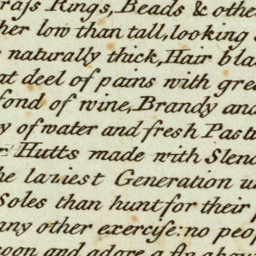 raſs Rings, Beads & othe
her low than tall, looking
naturally thick, Hair bla
at deel of pains with gre
fond of wine, Brandy and
y of water and fresh Pastu
Hutts made with Slend
he laziest Generation u
Soles than hunt for their
any other exerciſe: no peop
oon and adore a fin abou